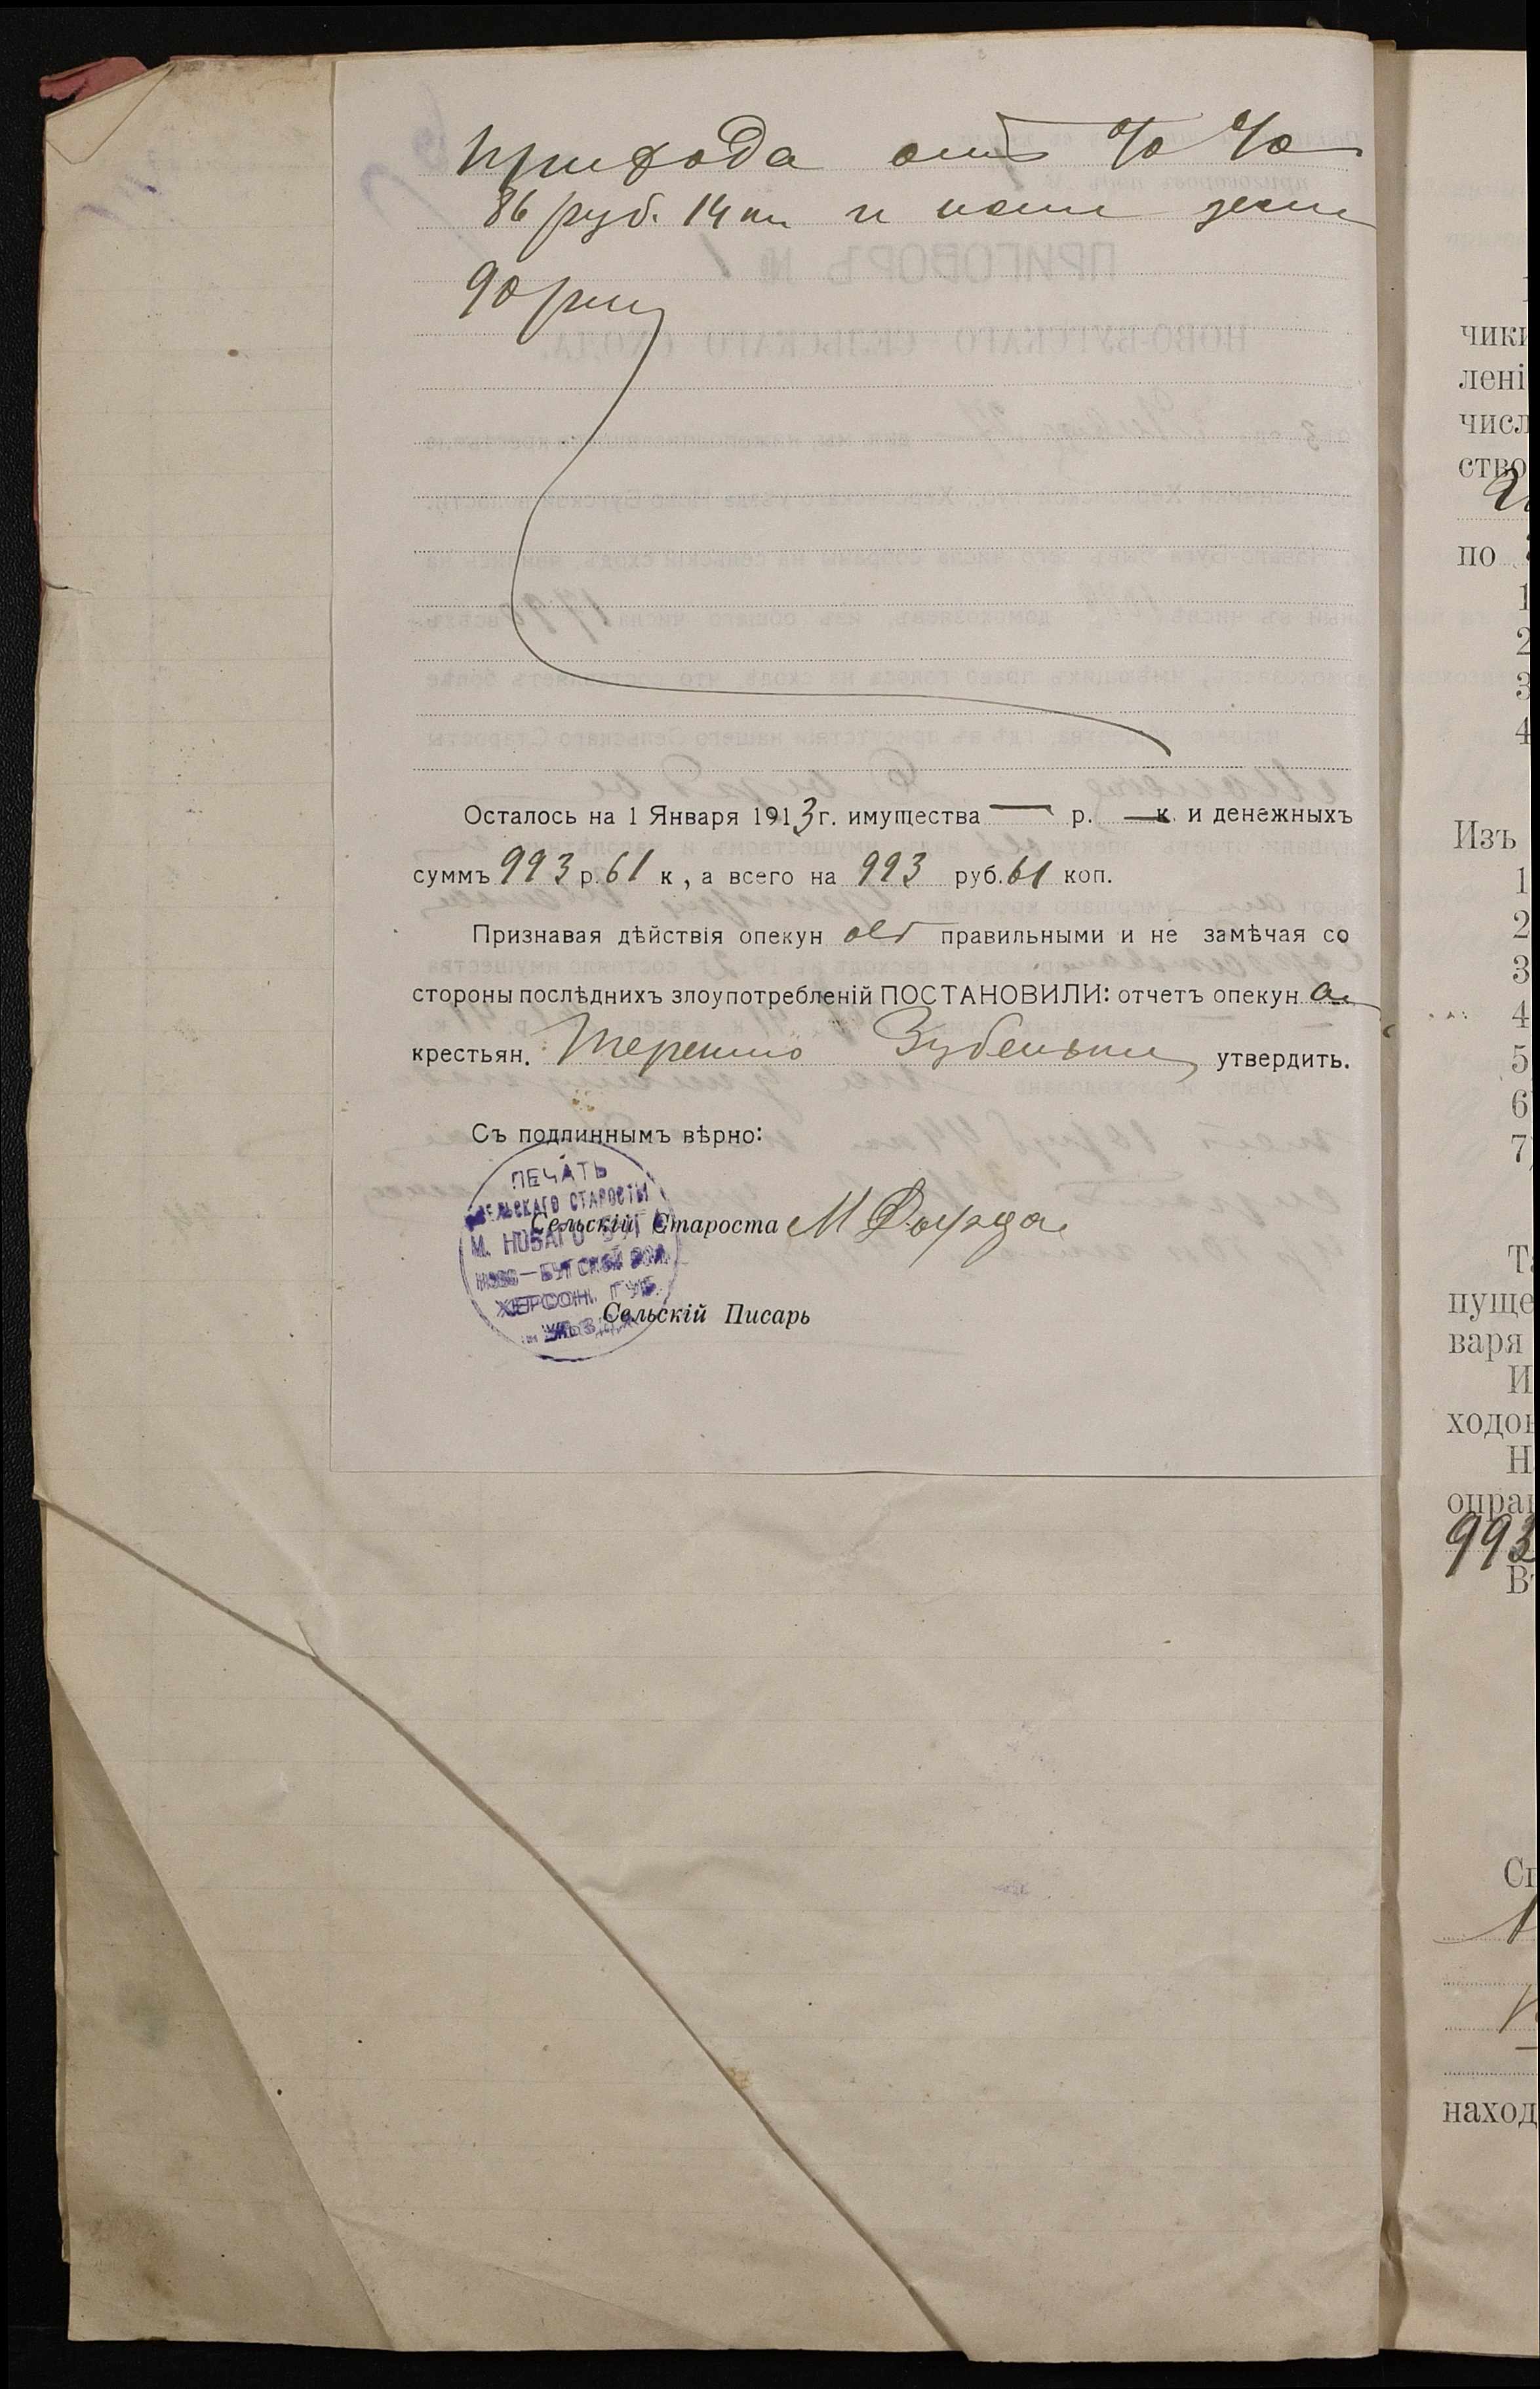 прихода отъ % %
86 руб. 14 коп и
90 руб
Осталось на 1 Января 1913 г. имущества — р. — к. и денежныхъ
суммъ 993 р. 61 к., а всего на 993 руб. 61 коп.
Признавая дѣйствія опекун овъ правильными и не замѣчая со
стороны послѣднихъ злоупотребленій ПОСТАНОВИЛИ: отчетъ опекун а
крестьян. Зубенько утвердить.
Съ подлиннымъ вѣрно:
ПЕЧАТЬ
СЕЛЬСКАГО СТАРОСТЫ
М. НОВАГО БУГА
НОВО-БУГСКОЙ ВОЛ.
ХЕРСОН. ГУБ.
Сельскій Староста М
Сельскій Писарь
чики
лені
числ
ство
по
1
2
3
4
Изъ
1
2
3
4
5
6
7
пуще
варя
И
ходов
Н
оправ
993
наход